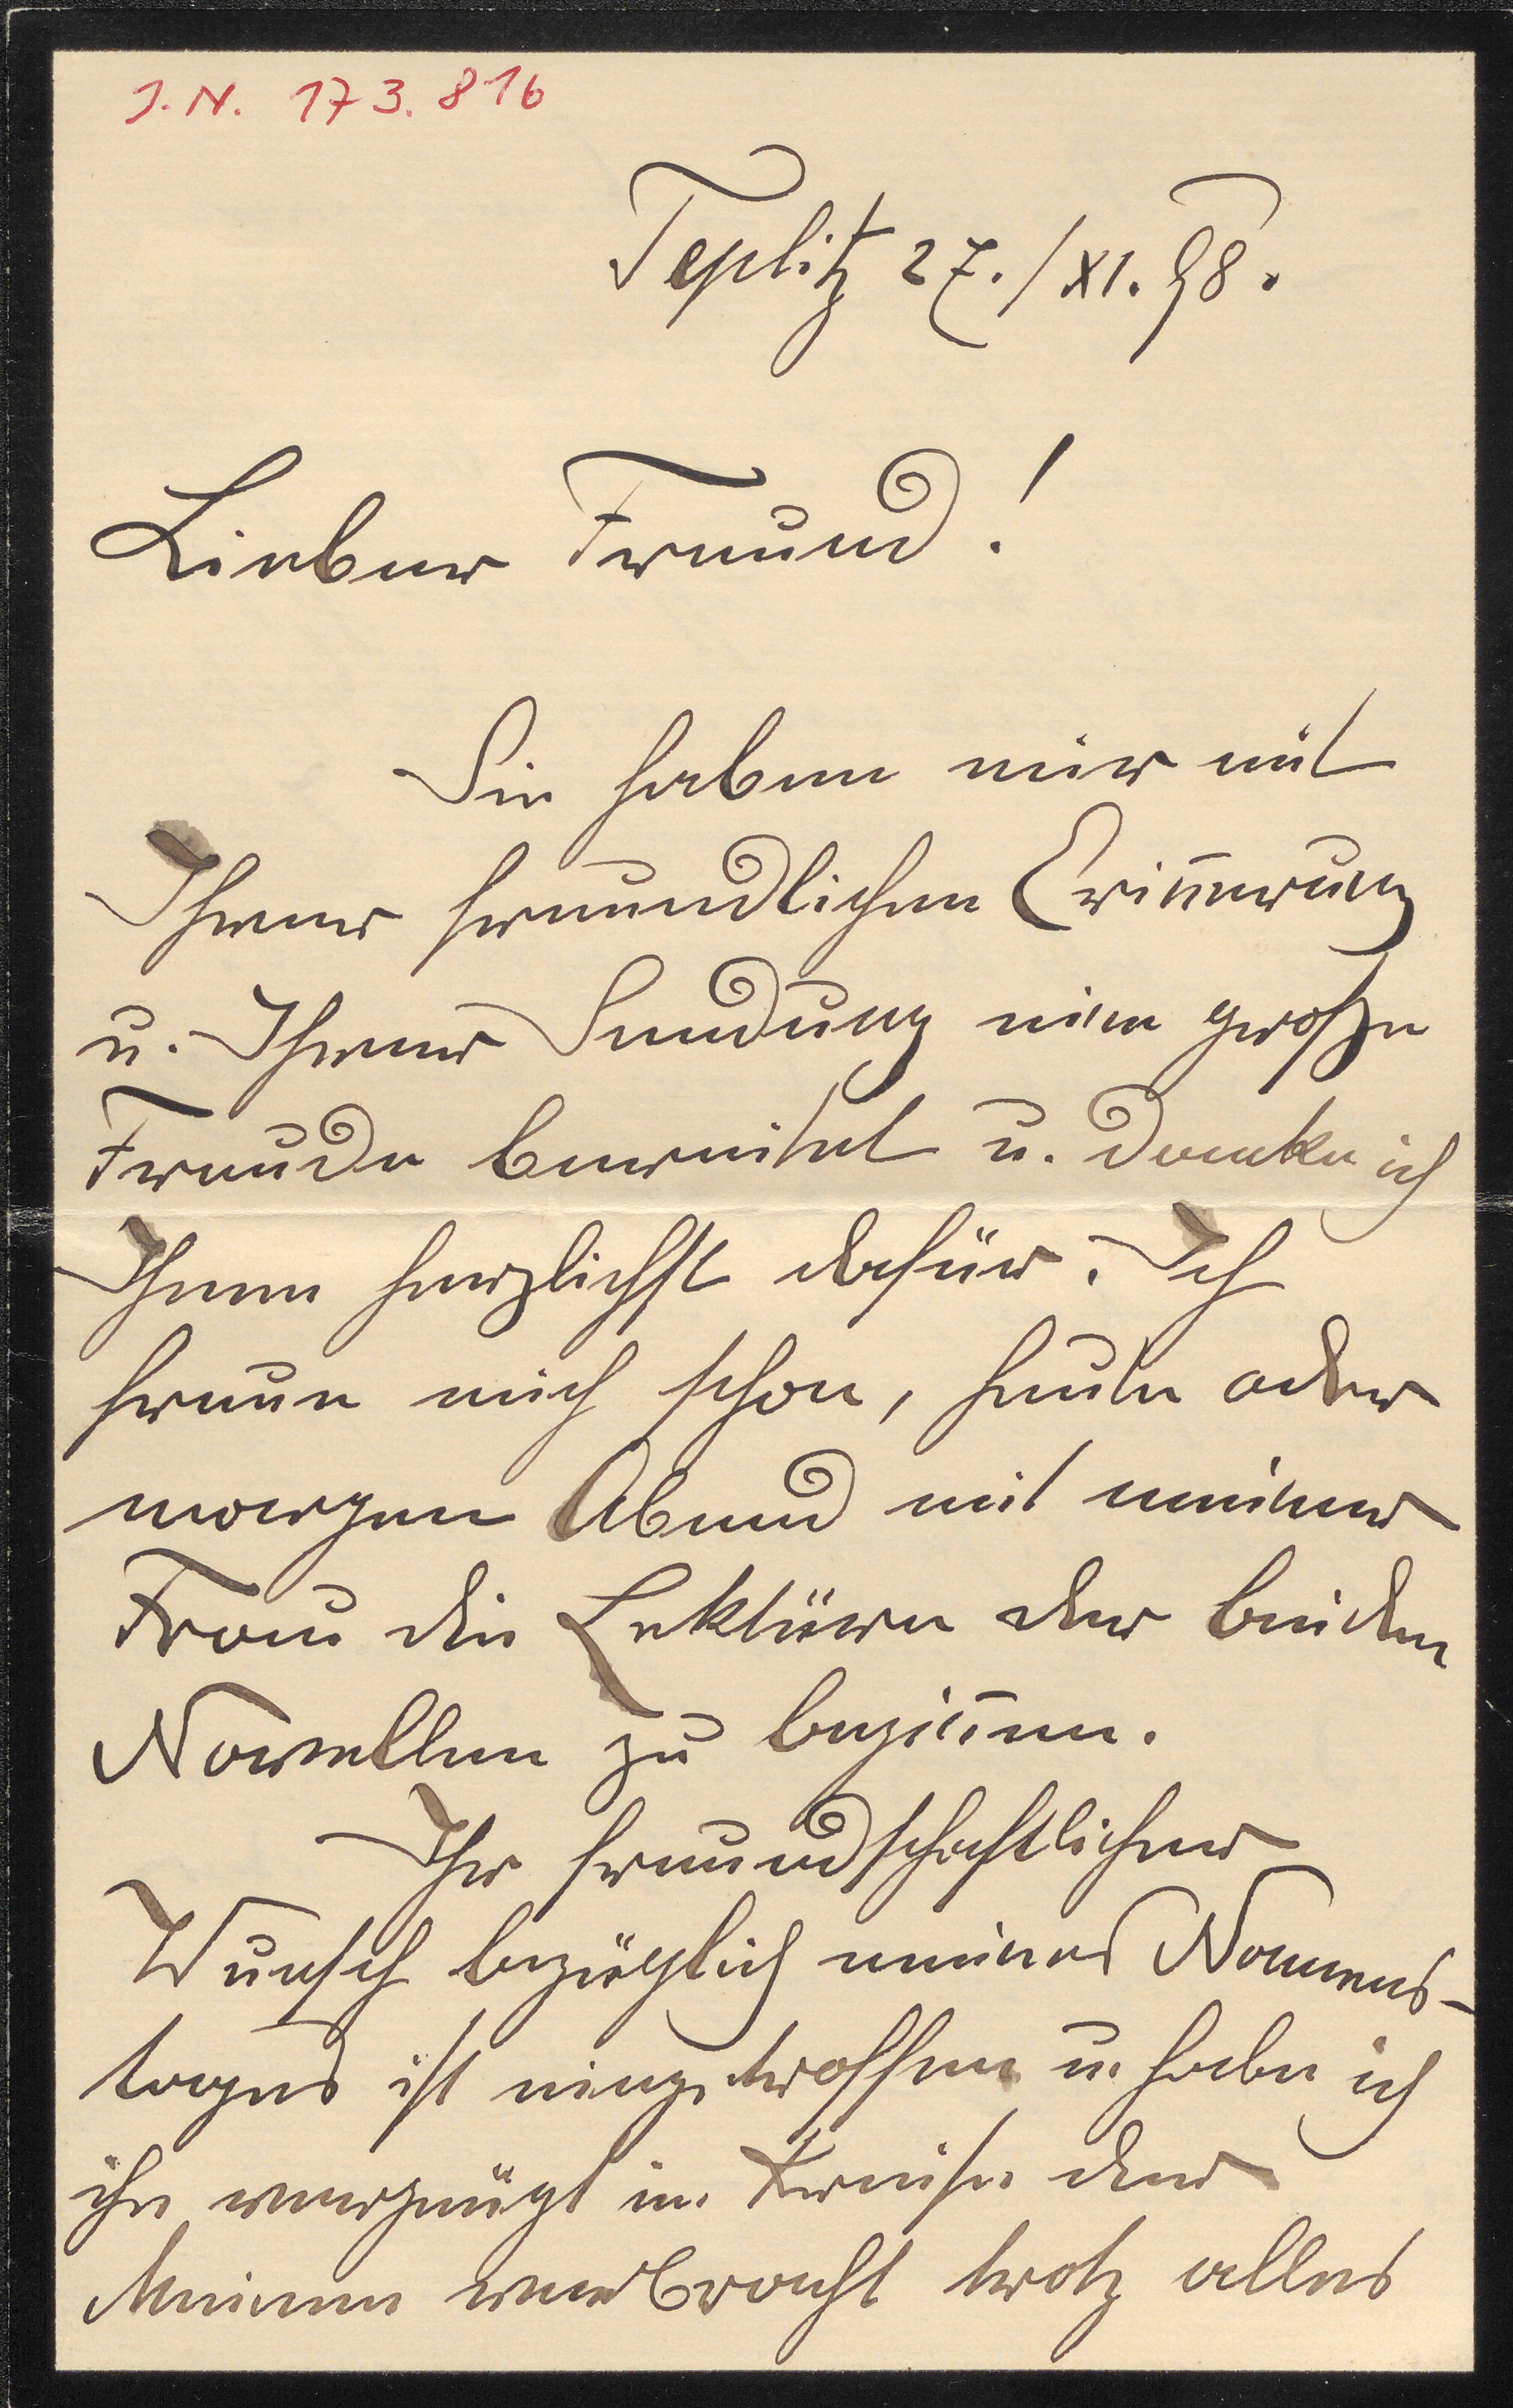 I.N. 173.816
Teplitz 27./XI. 98.
Lieber Freund!
Sie haben mir mit
Ihrer freundlichen Erin̄erung
u. Ihrer Sendung eine große
Freude bereitet u. danke ich
Ihnen herzlichst dafür. Ich
freue mich schon, heute oder
morgen Abend mit meiner
Frau die Lektüre der beiden
Novellen zu begin̄en.
Ihr freundschaftlicher
Wunsch bezüglich meines Namens-
tages ist eingetroffen u. habe ich
ihn vergnügt im Kreise der
Meinen verbracht trotz alles